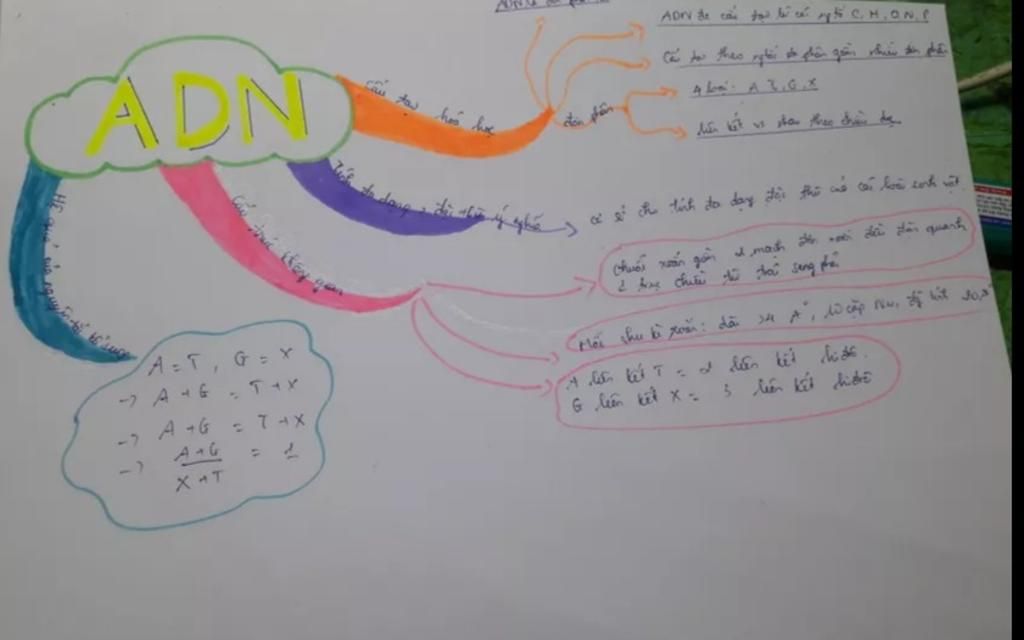 ADN là
ADN
Cấu tạo hoá học
ADN đc cấu tạo từ các ngtố C, H, O, N, P
Cấu tạo theo ngtắc đa phân gồm nhiều đơn phân
đơn phân
4 loại: A, T, G, X
liên kết vs nhau theo chiều dọc
Tính đa dạng, đặc thù, ý nghĩa
cơ sở cho tính đa dạng đặc thù của các loài sinh vật
Cấu trúc không gian
chuỗi xoắn gồm 2 mạch đơn xoắn đều đặn quanh
1 trục chiều từ trái sang phải
Mỗi chu kì xoắn: dài 34 A°, 10 cặp Nu,
A liên kết T = 2 liên kết hiđrô
G liên kết X = 3 liên kết hiđrô
Hệ quả của nguyên tắc bổ sung
A = T, G = X
-> A + G = T + X
-> A + G = T + X
-> A+G / X+T = 1